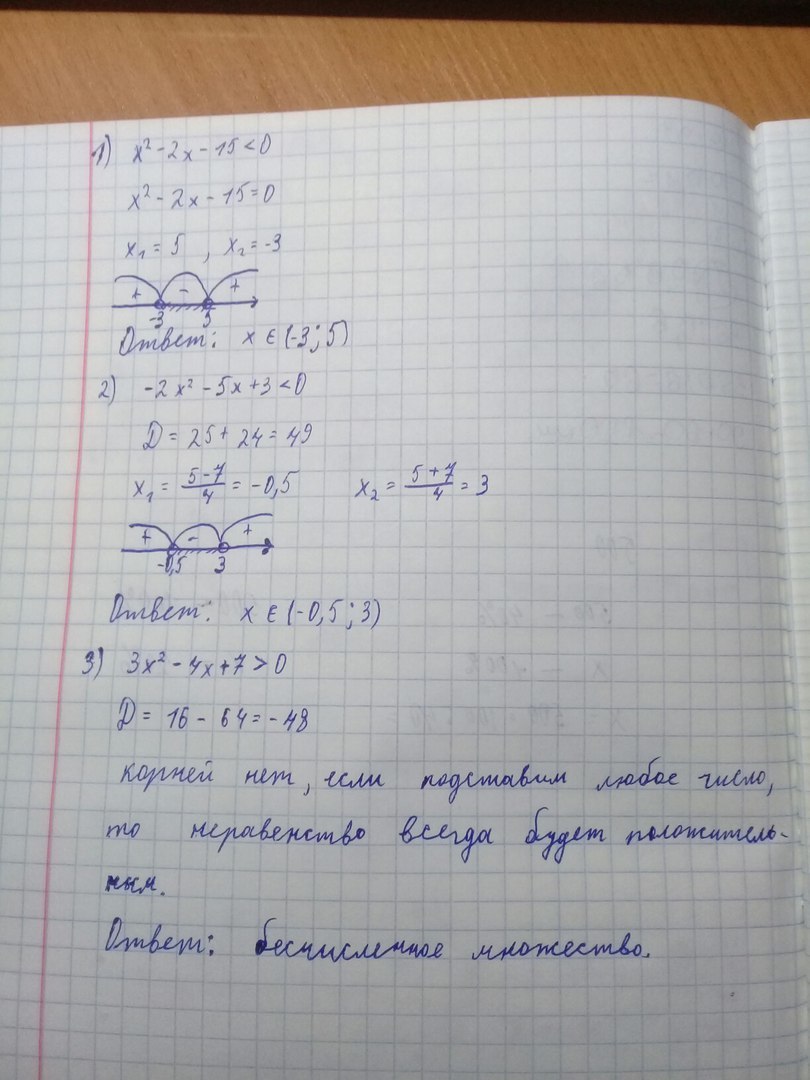 1) x² - 2x - 15 < 0
x² - 2x - 15 = 0
x₁ = 5 , x₂ = -3
+ - +
-3 5
Ответ: x ∈ (-3; 5)
2) -2x² - 5x + 3 < 0
D = 25 + 24 = 49
x₁ = (5-7)/4 = -0,5 x₂ = (5+7)/4 = 3
+ - +
-0,5 3
Ответ: x ∈ (-0,5; 3)
3) 3x² - 4x + 7 > 0
D = 16 - 64 = -48
корней нет, если подставим любое число,
то неравенство всегда будет положитель-
ным.
Ответ: бесчисленное множество.